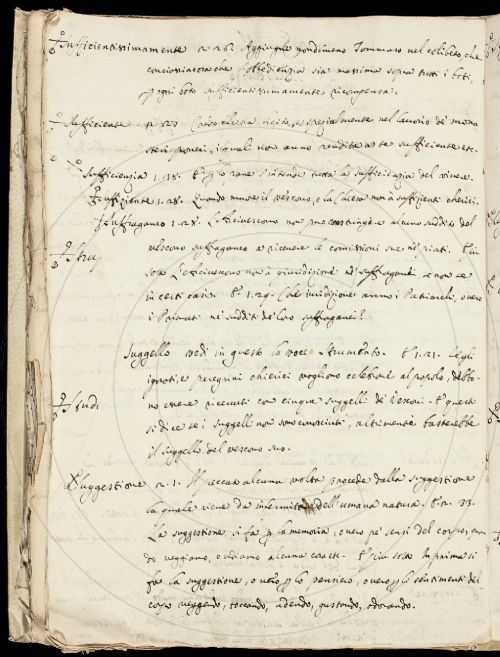 Sufficientissimamente n. 26. Aggiugne nondimeno Tommaso nel quolibeto, che
conciossiacosa che obbedienzia sia massima sopra tutti i boti,
ogni boto sufficientissimamente ricompensa.
Sufficiente n. 27. spezialmente nel lavorio de' mona
steri poveri, i quali non anno rendite a se sufficiente etc.
Sufficienzia 1. 28. E p lo pane s'intende tutta la sufficienzia del vivere.
Suffiziente 1. 28. Quando muore il vescovo, e la Chiesa non à suffizienti cherici.
Suffraganeo 1. 28. L'Arcivescovo non può costringere alcuno suddito del
vescovo suffraganeo a ricevere le comissioni sue ne' piati. E più
sotto L'Arcivescovo non à giuridizione ne' suffraganei se non se
in certi casi. E 1. 29. Che giuridizione anno i Patriarchi, overo
i Primati ne' sudditi de' loro suffraganei?
Suggello vedi in questo la voce Strumento. E 1. 21. Se gli
ignoti, e peregrini chierici vogliono celebrare al popolo, debbo-
no essere ricevuti con cinque suggelli di Vescovi. E questo
si dice se i suggelli non sono conosciuti, altrimenti basterebbe
il suggello del vescovo suo.
Suggestione n. 1. Il peccato alcuna volta procede dalla suggestione
la quale viene da infermitade dell'umana natura. E n. 33.
La suggestione si fa p la memoria, overo pe' sensi del corpo, quan
do veggiamo, o udiamo alcuna cosa etc. E più sotto Imprima si
fa la suggestione, o vero p lo pensiero, overo p lo sentimenti del
corpo veggendo, toccando, udendo, gustando, odorando.